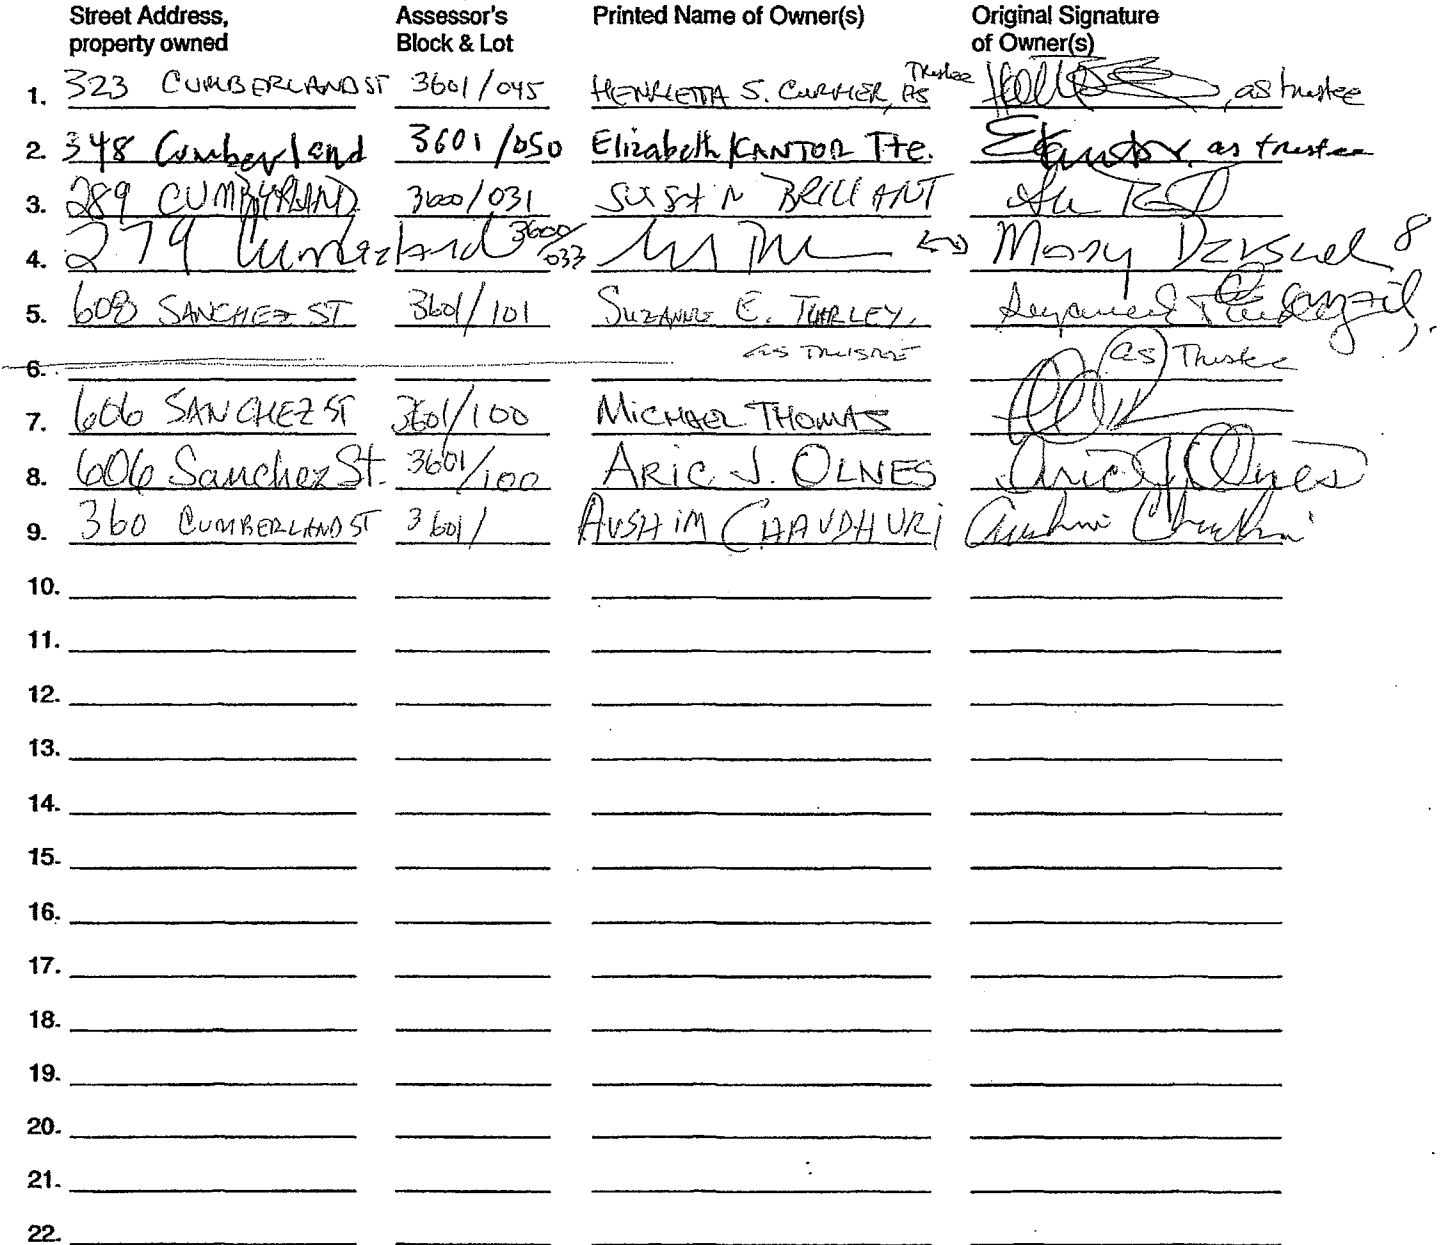 Street Address, property owned Assessor's Block & Lot Printed Name of Owner(s) Original Signature of Owner(s)
1. 323 CUMBERLAND ST 3601/045 HENRIETTA S. CURRIER, AS Trustee , as trustee
2. 348 Cumberland 3601/050 Elizabeth KANTOR Tte. EKantor as trustee
3. 289 CUMBERLAND 3600/031 SUSAN BRILLIANT
4. 279 Cumberland 3600/033 Mary
5. 608 SANCHEZ ST 3601/101 SUZANNE E. TURLEY,
6. as TRUSTEE as Trustee
7. 606 SANCHEZ ST 3601/100 MICHAEL THOMAS
8. 606 Sanchez St. 3601/100 ARIC J. OLNES Aric J Olnes
9. 360 CUMBERLAND ST 3601/ AUSHIM CHAUDHURI
10.
11.
12.
13.
14.
15.
16.
17.
18.
19.
20.
21.
22.